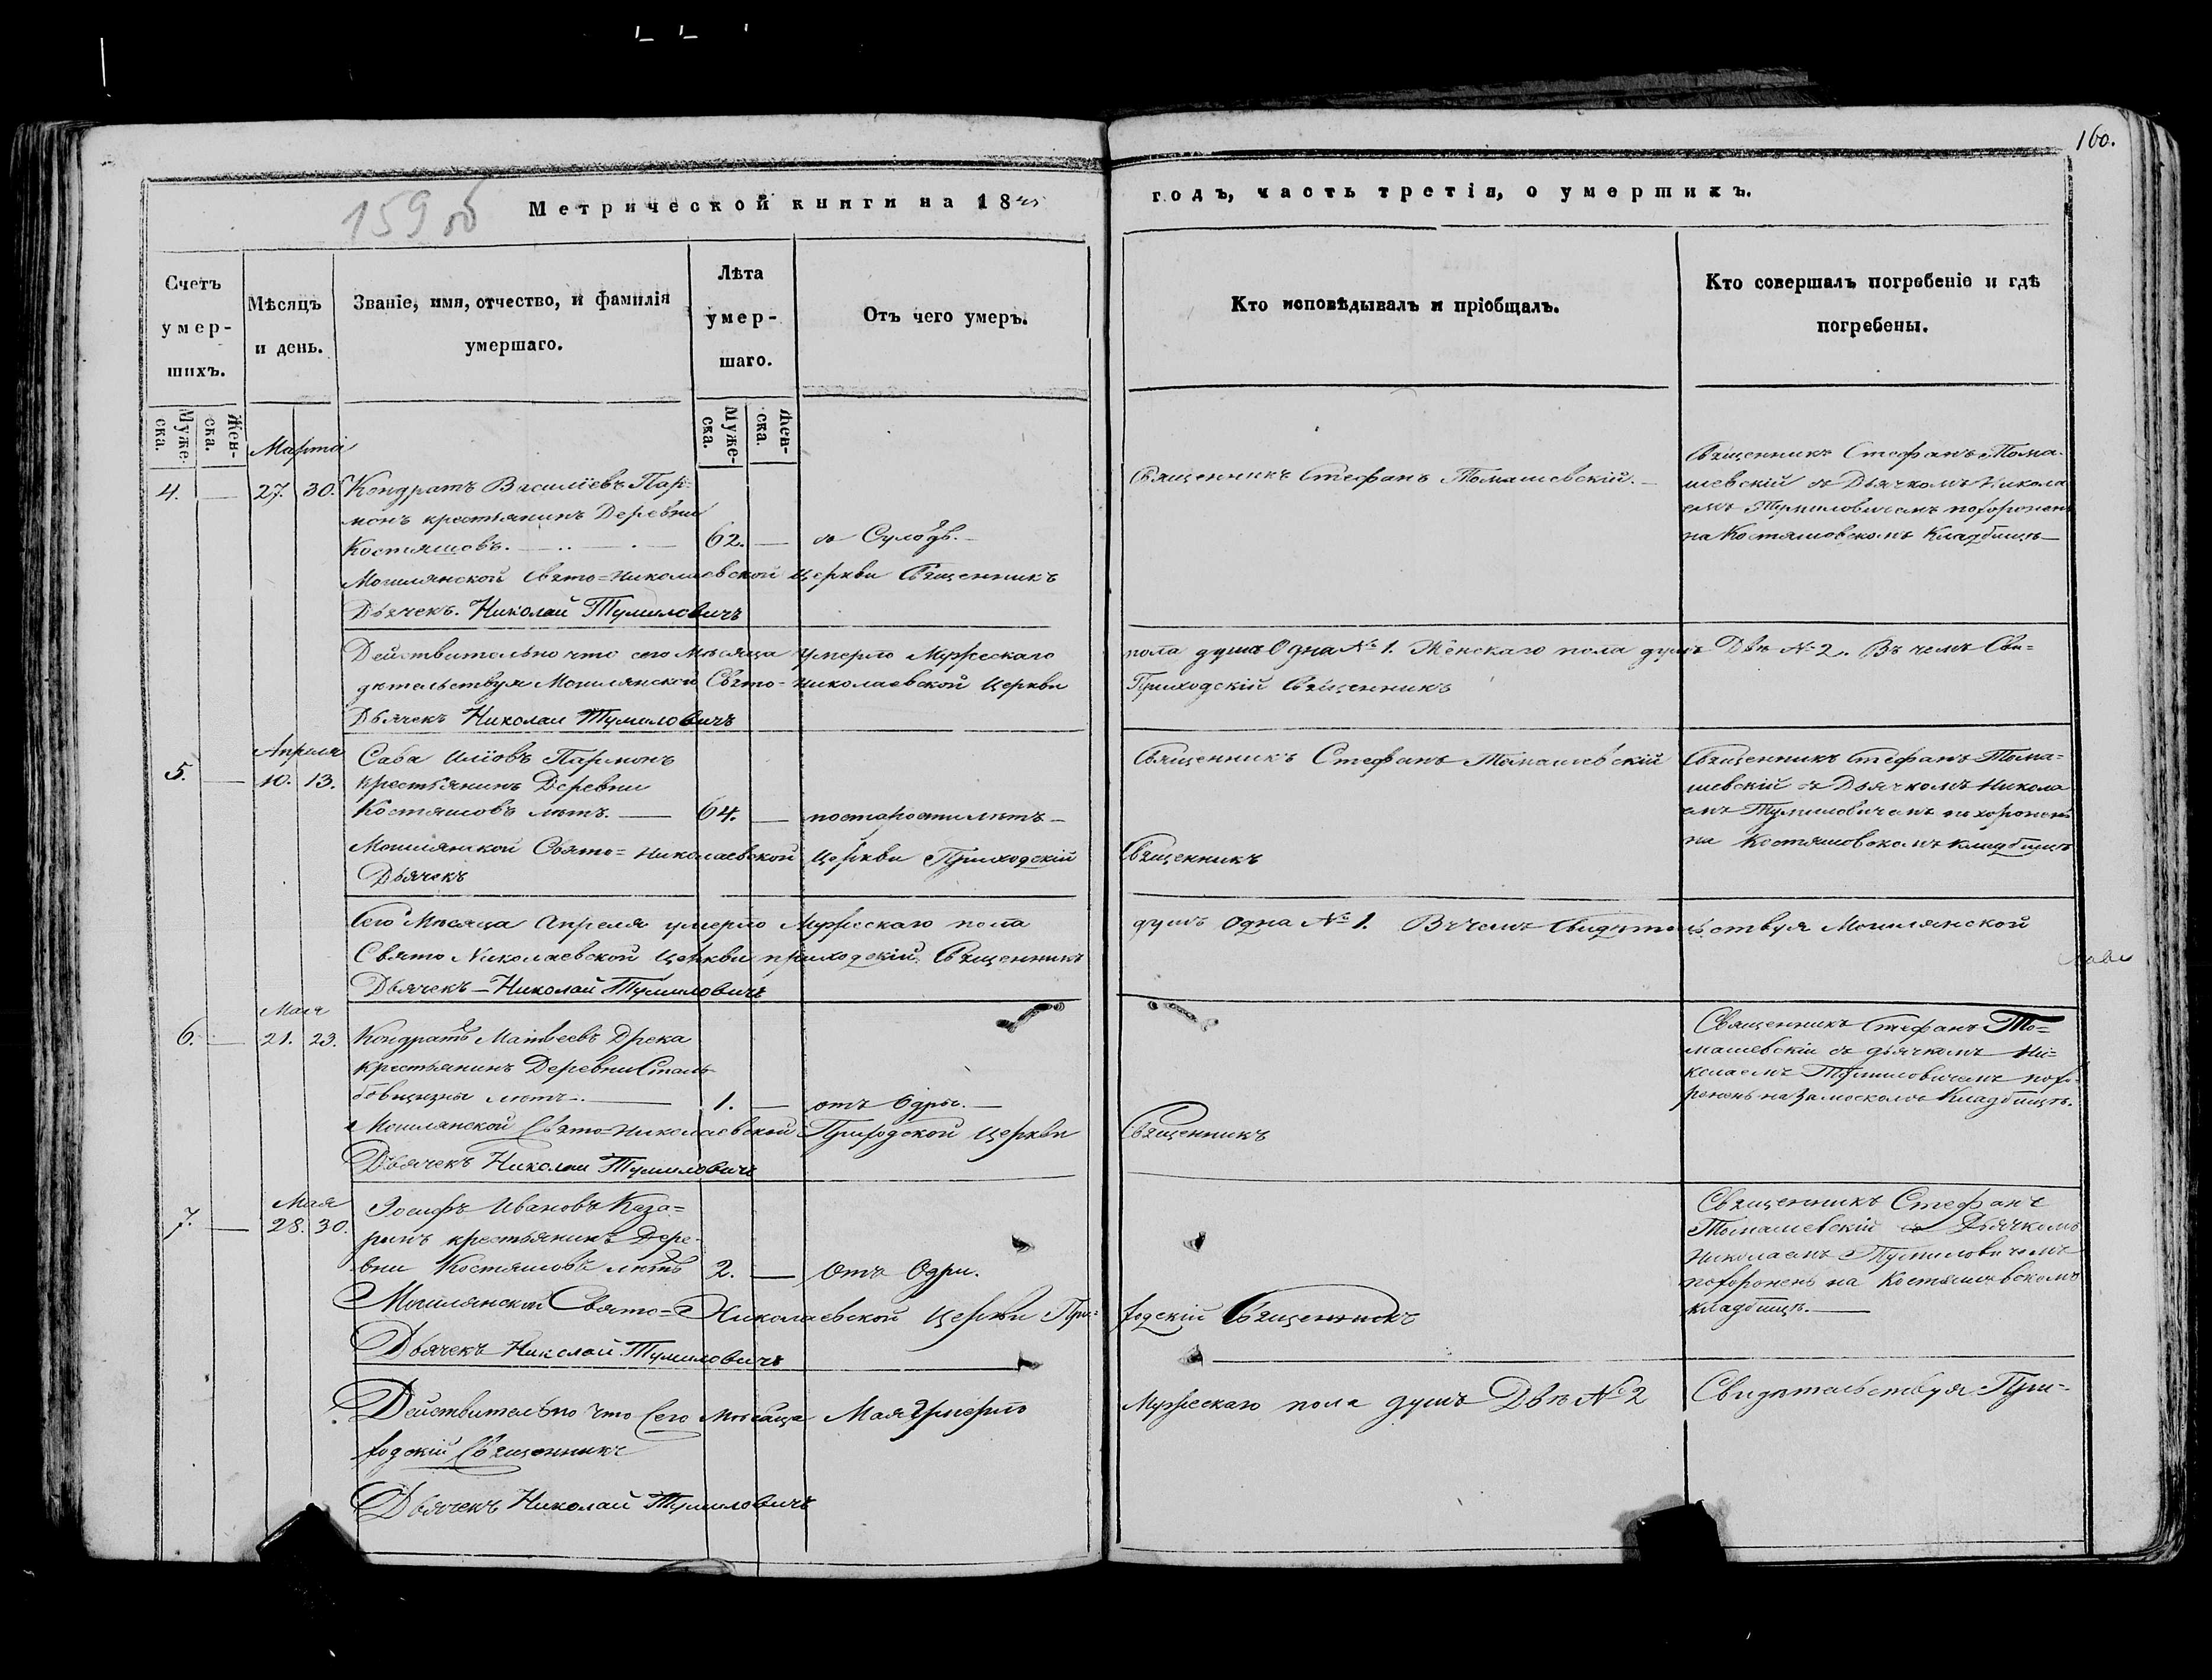 160.
159 об
Метрической книги на 18
годъ, часть третія, о умершихъ.
Счетъ умер-шихъ.
Мѣсяцъ и день.
Званіе, имя, отчество, и фамилія умершаго.
Лѣта умер-шаго.
Отъ чего умеръ.
Кто исповѣдывалъ и пріобщалъ.
Кто совершалъ погребеніе и гдѣ погребены.
Муже-ска.
Жен-ска.
Муже-ска.
Жен-ска.
Марта
4. — 27. 30. Кондратъ Василіевъ Пар-
монъ крестьянинъ Деревни
Костяшовъ. 62. —
Священникъ Стефанъ Томашевскій. —
Священникъ Стефанъ Тома-
шевскій съ Дьячкомъ Никола
емъ Тумиловичемъ похороненъ
на Костяшовскомъ Кладбищѣ —
Могилянской Свято=Николаевской Церкви Священникъ
Дьячекъ. Николай Тумиловичъ
Действительно что сего Мѣсяца Умерло Мужескаго
пола душъ Одна № 1. Женскаго пола душъ Двѣ № 2. Въ чемъ Сви=
дѣтельствуя Могилянской Свято=Николаевской Церкви
Приходскій Священникъ
Дьячекъ Николай Тумиловичъ
Апреля
5. — 10. 13. Сава Иліовъ Пармонъ
крестьянинъ Деревни
Костяшовъ лѣтъ. — 64. — постарости лѣтъ —
Священникъ Стефанъ Томашевскій
Священникъ Стефанъ Тома=
шевскій съ Дьячкомъ Никола
емъ Тумиловичемъ похороненъ
на Костяшовскомъ кладбищѣ
Могилянской Свято=Николаевской Церкви Приходскій
Священникъ
Дьячекъ
Сего Мѣсяца Апреля умерло Мужескаго пола
душъ Одна № 1. Въ чемъ Свидѣтельствуя Могилянской
Свято Николаевской Церкви приходскій Священникъ
Дьячекъ — Николай Тумиловичъ
Мая
6. — 21. 23. Кондратъ Матвеевъ Дрека
крестьянинъ Деревни Столь
бовщизны лѣтъ. — 1. — отъ Одры. —
Священникъ Стефанъ То=
машевскій съ дьячкомъ Ни=
колаемъ Тумиловичемъ похо-
роненъ на Кладбищѣ.
Могилянской Свято=Николаевской Приходской Церкви
Священникъ
Дьячекъ Николай Тумиловичъ
Мая
7. — 28. 30. Іосифъ Ивановъ Каза=
ринъ крестьянинъ Дере-
вни Костяшовъ лѣтъ 2. — Отъ Одри.
Священникъ Стефанъ
Томашевскій съ Дьячкомъ
Николаемъ Тумиловичемъ
похороненъ на Костяшовскомъ
кладбищѣ. —
Могилянской Свято=Николаевской Церкви При=
ходскій Священникъ
Дьячекъ Николай Тумиловичъ
Действительно что Сего Мѣсяца Мая Умерло
Мужескаго пола душъ Двѣ № 2 Свидѣтельствуя При-
ходскій Священникъ
Дьячекъ Николай Тумиловичъ